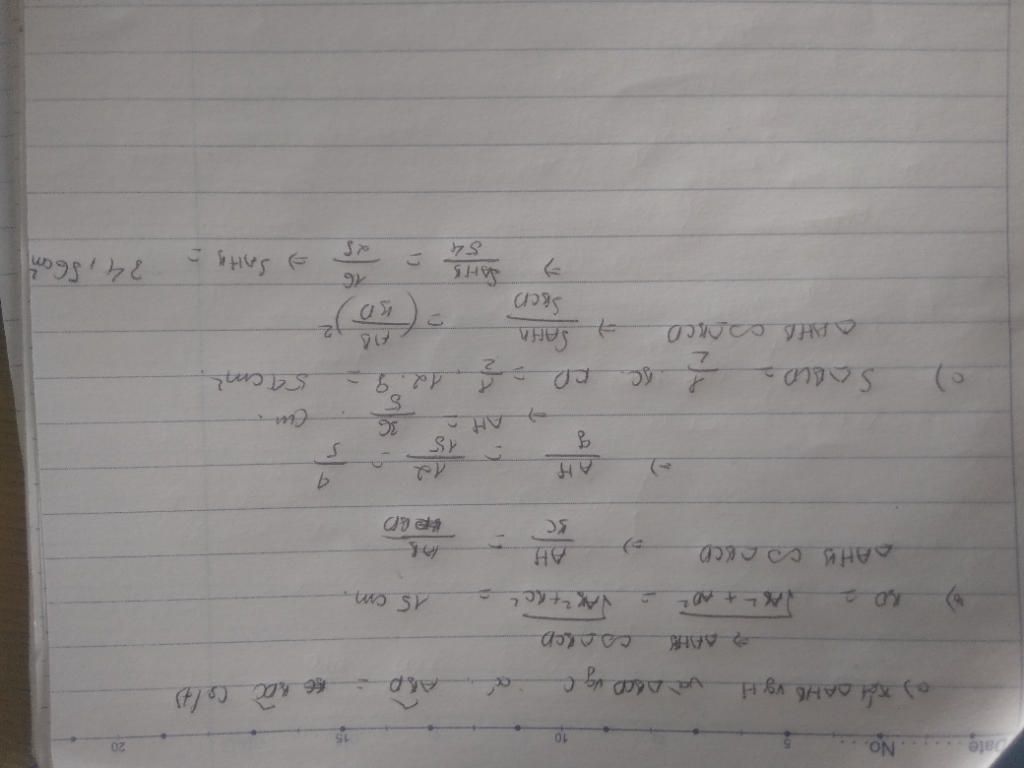 Date ......... No.
5 10 15 20
a) Xét △AHB vg H và △BCD vg C có ABD = BDC (slt)
⇒ △AHB ∽ △BCD
b) BD = √AB² + AD² = √AB² + BC² = 15 cm.
△AHB ∽ △BCD ⇒ AH/BC = AB/BD
⇒ AH/9 = 12/15 = 4/5
⇒ AH = 36/5 cm.
c) S△BCD = 1/2 . BC . CD = 1/2 . 12 . 9 = 54 cm².
△AHB ∽ △BCD ⇒ SAHB/SBCD = (AB/BD)²
⇒ SAHB/54 = 16/25 ⇒ SAHB = 34,56 cm²